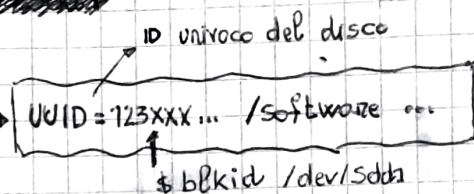 ID univoco del disco
UUID = 123XXX... /software ...
$ blkid /dev/sdda